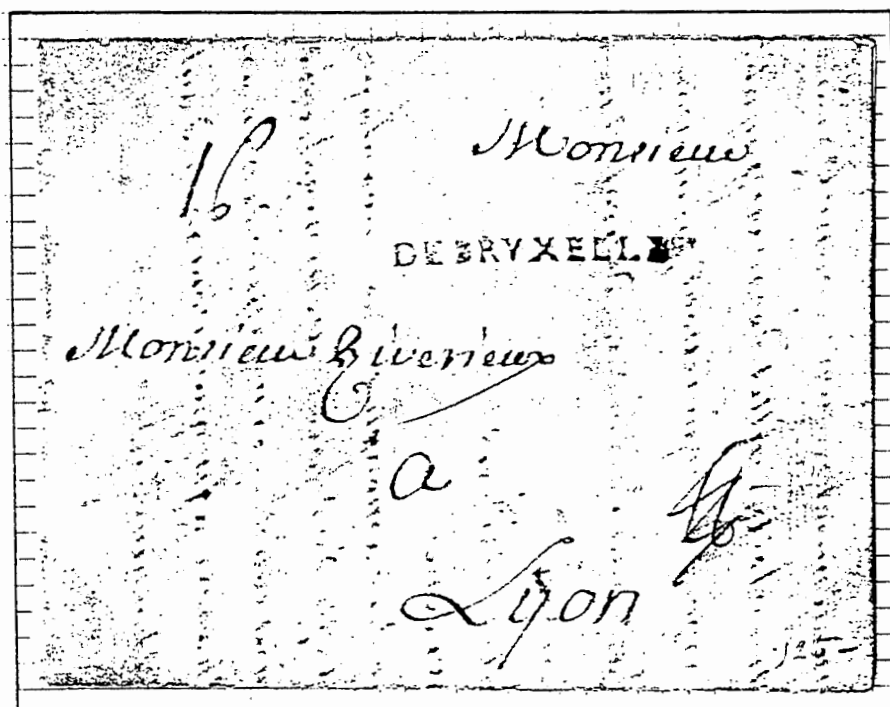 16
Monsieur
DEBRVXELLE
Monsieur Riverieux
a
Lyon